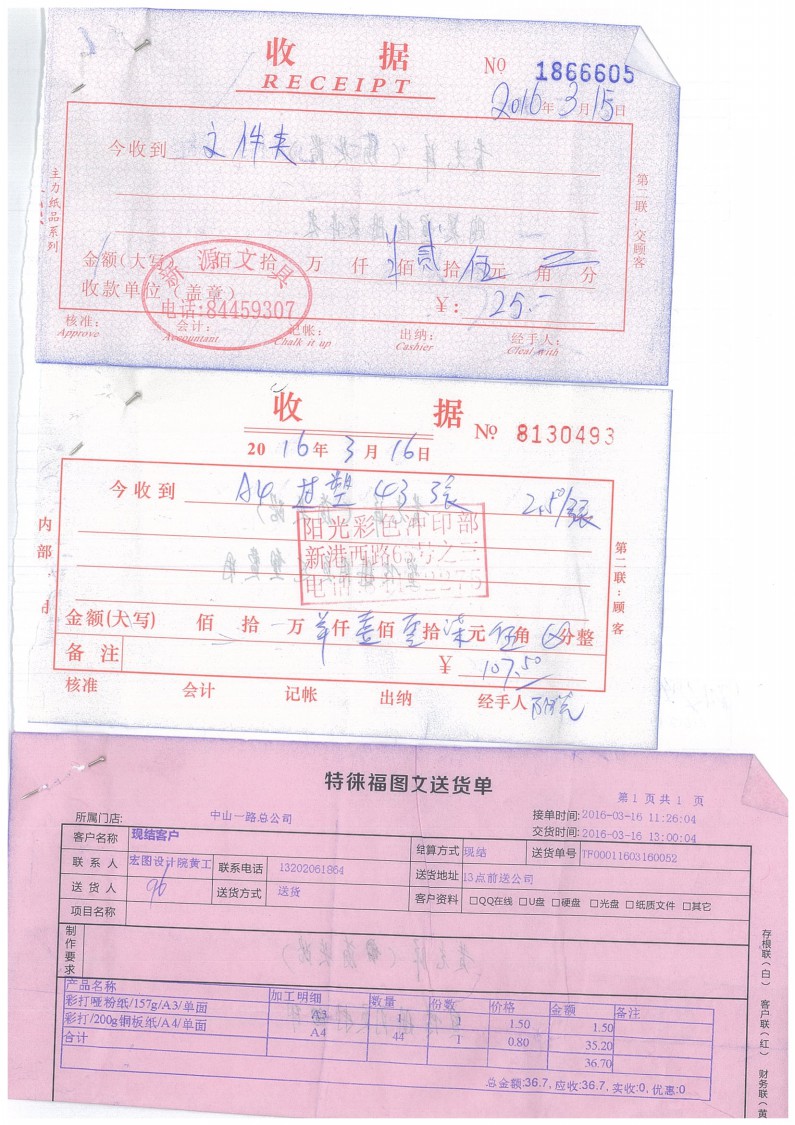 收 据
RECEIPT
№ 1866605
2016年3月15日
今收到 文件夹
主力纸品系列
第二联：交顾客
金额(大写) 佰 拾 万 仟 佰 贰拾 伍元 角 分
收款单位(盖章)
新源文具
电话:84459307
￥: 25.-
核准: 会计: 记帐: 出纳: 经手人:
Approve Accountant Chalk it up Cashier Cleal with
收 据
№ 8130493
2016年3月16日
今收到 A4 过塑 43张 2.50/张
阳光彩色冲印部
新港西路63号之三
内部
第二联：顾客
金额(大写) 佰 拾 万 仟 壹佰 零拾 柒元 伍角 分整
备注 ￥ 107.50
核准 会计 记帐 出纳 经手人 阳光
特徕福图文送货单
第 1 页 共 1 页
所属门店: 中山一路总公司 接单时间: 2016-03-16 11:26:04
交货时间: 2016-03-16 13:00:04
客户名称 现结客户 结算方式 现结 送货单号 TF00011603160052
联系人 宏图设计院黄工 联系电话 13202061864 送货地址 13点前送公司
送货人 送货方式 送货 客户资料 □QQ在线 □U盘 □硬盘 □光盘 □纸质文件 □其它
项目名称
制作要求
存根联(白) 客户联(红) 财务联(黄
产品名称 加工明细 数量 份数 价格 金额 备注
彩打哑粉纸/157g/A3/单面 A3 1 1.50 1.50
彩打/200g铜板纸/A4/单面 A4 44 1 0.80 35.20
合计 36.70
总金额:36.7, 应收:36.7, 实收:0, 优惠:0